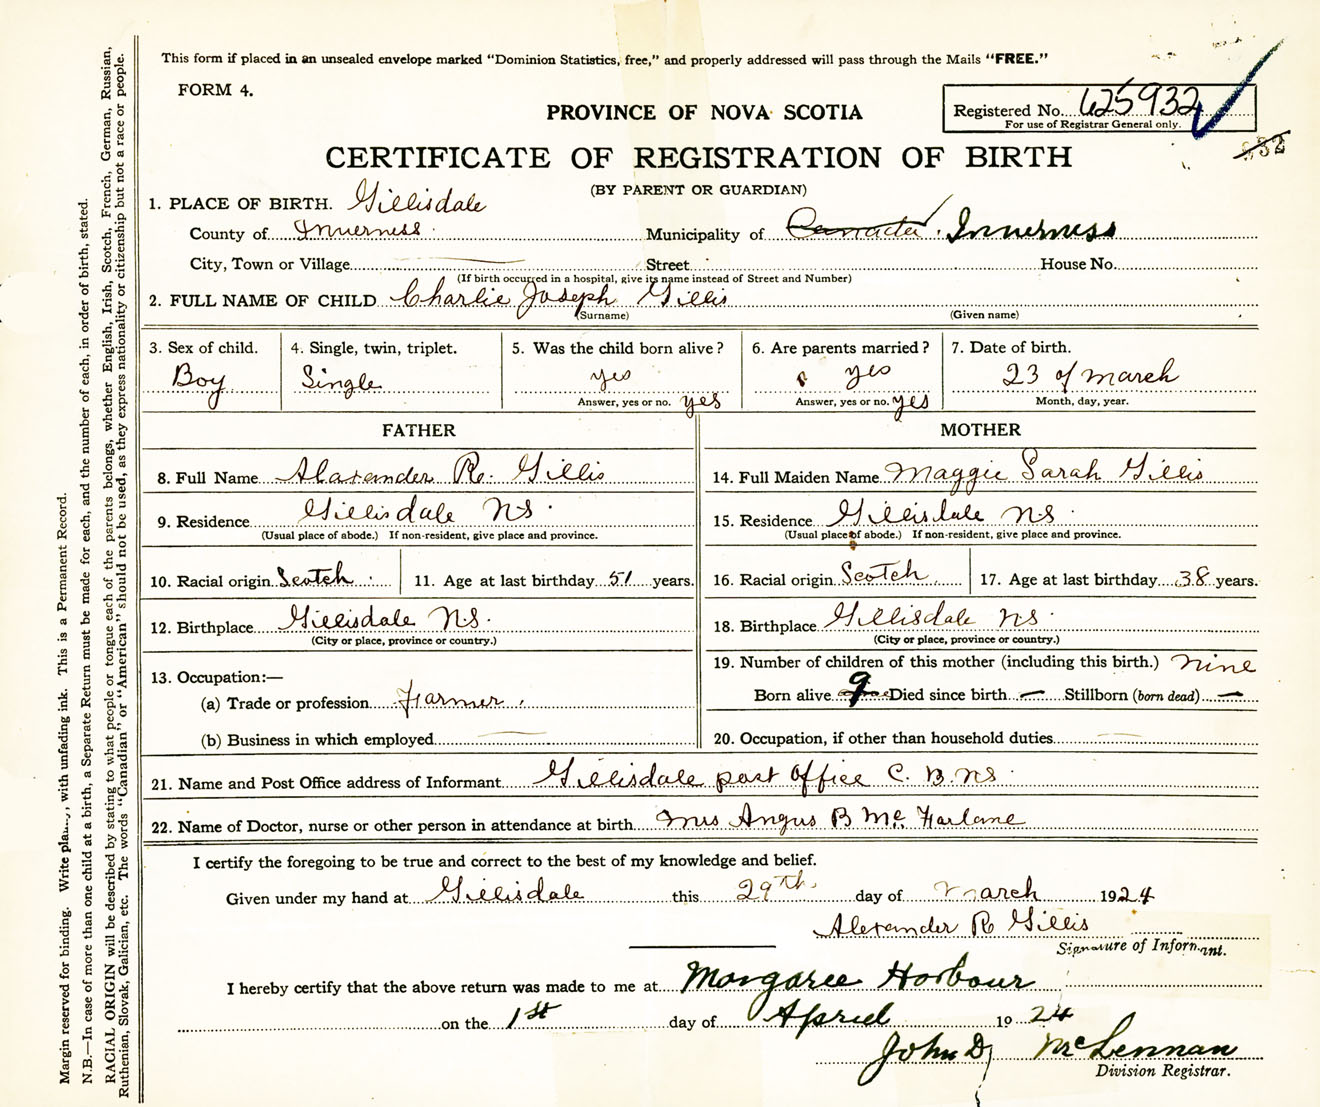 This form if placed in an unsealed envelope marked "Dominion Statistics, free," and properly addressed will pass through the Mails "FREE."
FORM 4.
PROVINCE OF NOVA SCOTIA
Registered No. 625932
For use of Registrar General only.
CERTIFICATE OF REGISTRATION OF BIRTH
(BY PARENT OR GUARDIAN)
1. PLACE OF BIRTH. Gillisdale
County of Inverness Municipality of Canada Inverness
City, Town or Village Street House No.
(If birth occurred in a hospital, give its name instead of Street and Number)
2. FULL NAME OF CHILD Charlie Joseph Gillis
(Surname) (Given name)
3. Sex of child. 4. Single, twin, triplet. 5. Was the child born alive? 6. Are parents married? 7. Date of birth.
Boy Single yes yes 23 of march
Answer, yes or no. yes Answer, yes or no. yes Month, day, year.
FATHER MOTHER
8. Full Name Alexander R. Gillis 14. Full Maiden Name Maggie Sarah Gillis
9. Residence Gillisdale NS. 15. Residence Gillisdale NS.
(Usual place of abode.) If non-resident, give place and province. (Usual place of abode.) If non-resident, give place and province.
10. Racial origin Scotch 11. Age at last birthday 51 years. 16. Racial origin Scotch 17. Age at last birthday 38 years.
12. Birthplace Gillisdale NS. 18. Birthplace Gillisdale NS.
(City or place, province or country.) (City or place, province or country.)
13. Occupation:— 19. Number of children of this mother (including this birth.) nine
(a) Trade or profession Farmer Born alive 9 Died since birth — Stillborn (born dead) —
(b) Business in which employed 20. Occupation, if other than household duties
21. Name and Post Office address of Informant Gillisdale post office C. B. NS.
22. Name of Doctor, nurse or other person in attendance at birth Mrs Angus B Mc Farlane
I certify the foregoing to be true and correct to the best of my knowledge and belief.
Given under my hand at Gillisdale this 29th day of March 1924
Alexander R Gillis
Signature of Informant.
I hereby certify that the above return was made to me at Margaree Harbour
on the 1st day of April 1924
John D McLennan
Division Registrar.
Margin reserved for binding. Write plainly, with unfading ink. This is a Permanent Record.
N.B.—In case of more than one child at a birth, a Separate Return must be made for each, and the number of each, in order of birth, stated.
RACIAL ORIGIN will be described by stating to what people or tongue each of the parents belongs, whether English, Irish, Scotch, French, German, Russian,
Ruthenian, Slovak, Galician, etc. The words "Canadian" or "American" should not be used, as they express nationality or citizenship but not a race or people.